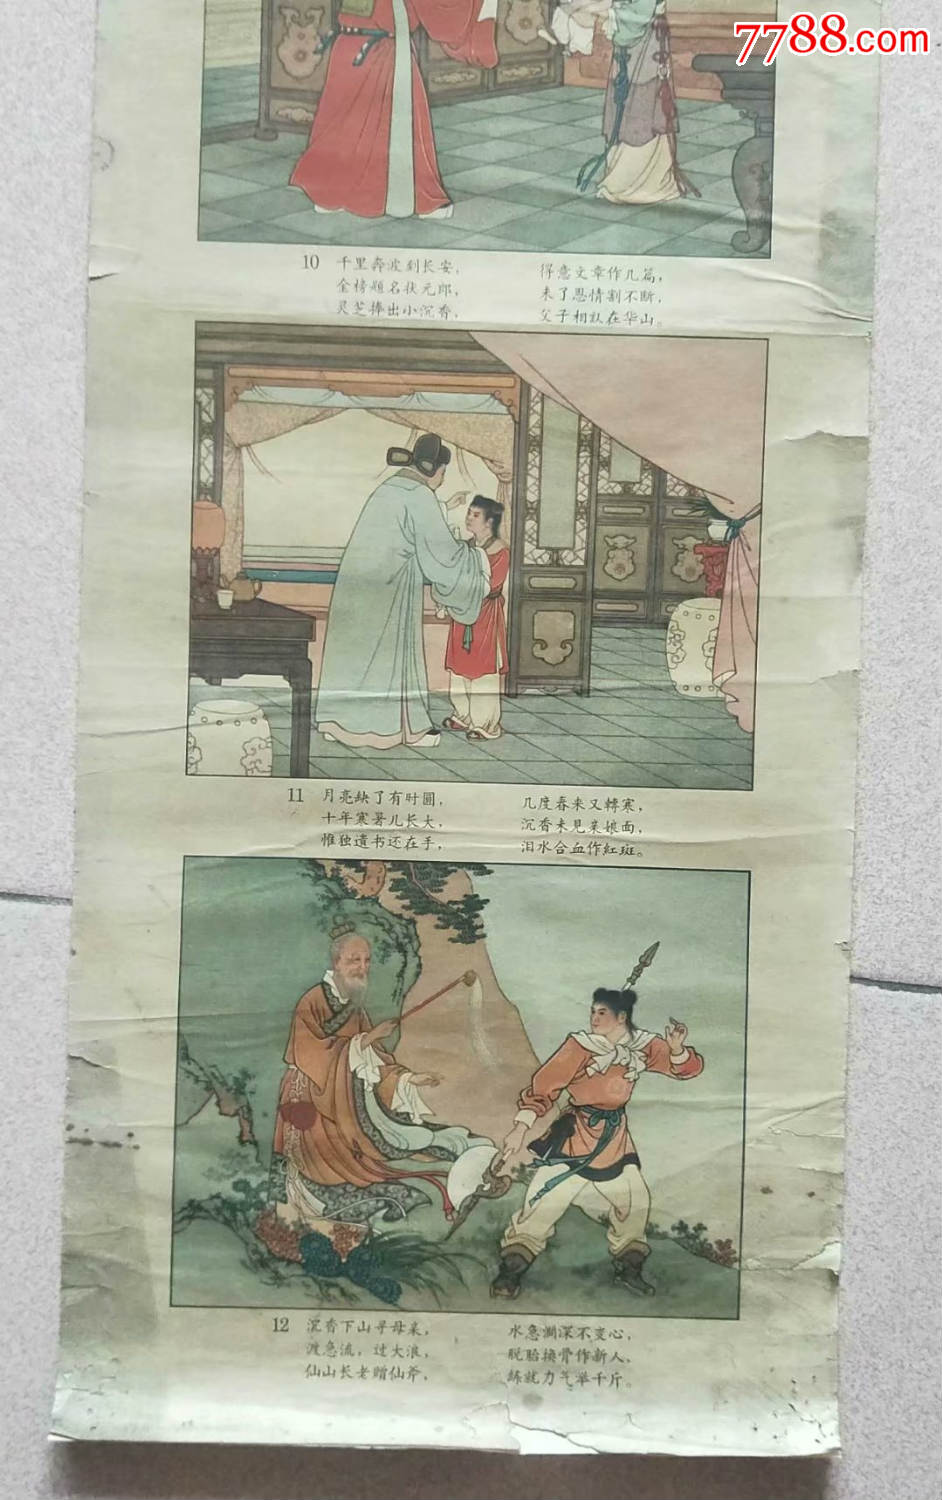 7788.com
10 千里奔波到长安， 得意文章作几篇，
金榜题名状元郎， 未了恩情割不断，
灵芝捧出小沉香， 父子相认在华山。
11 月亮缺了有时圓， 几度春来又轉寒，
十年寒暑儿长大， 沉香未見亲娘面，
惟独遺书还在手， 泪水合血作紅斑。
12 沉香下山寻母亲， 水急澗深不变心，
渡急流，过大浪， 脱胎换骨作新人，
仙山长老贈仙斧， 練就力气举千斤。